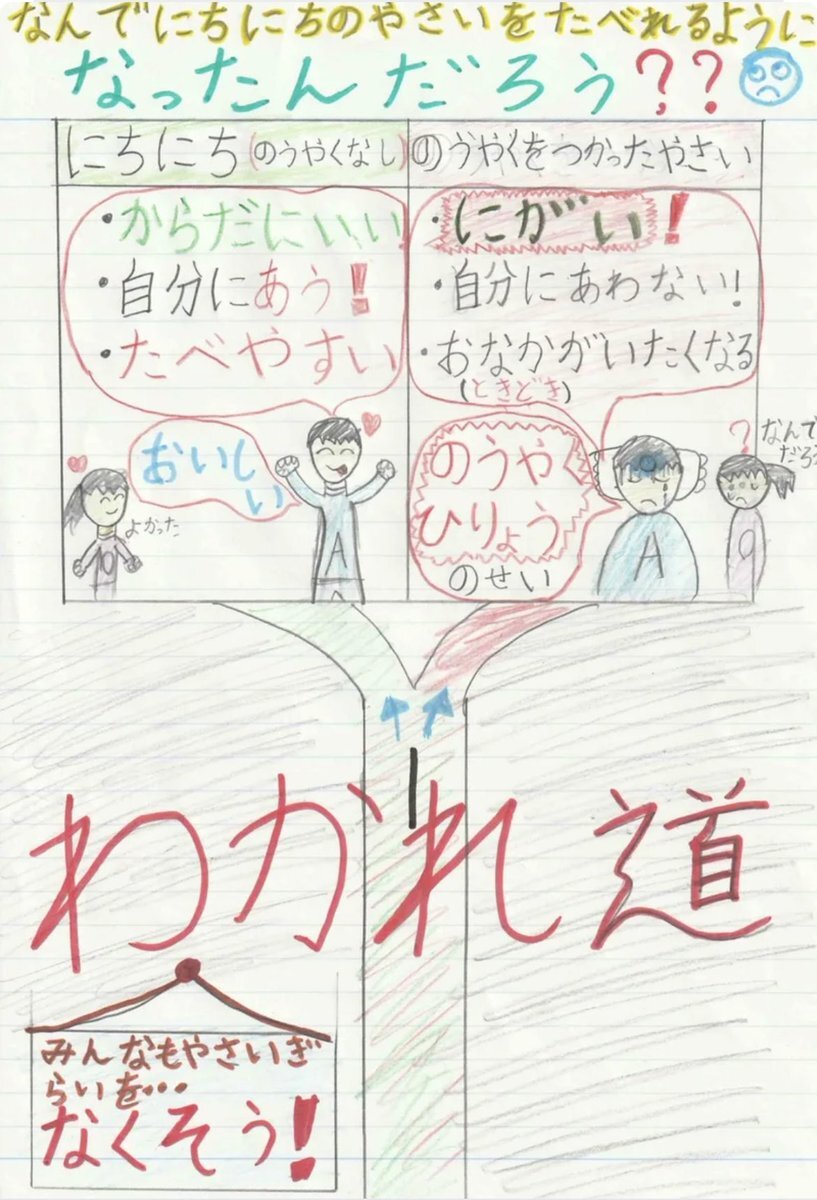 なんでにちにちのやさいをたべれるように
なったんだろう??
にちにち(のうやくなし)
のうやくをつかったやさい
・からだにいい
・自分にあう!
・たべやすい
おいしい
よかった
・にがい!
・自分にあわない!
・おなかがいたくなる
(ときどき)
のうやく
ひりょう
のせい
?
なんで
だろう
A
A
わかれ道
みんなもやさいぎ
らいを・・・
なくそう!